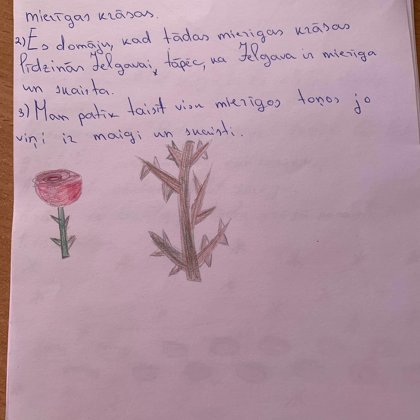 mierīgas krāsas.
2) Es domāju, kad tādas mierīgas krāsas
līdzinās Jelgavai, tāpēc, ka Jelgava ir mierīga
un skaista.
3) Mam patīk taisīt visu mierīgos toņos jo
viņi ir maigi un skaisti.